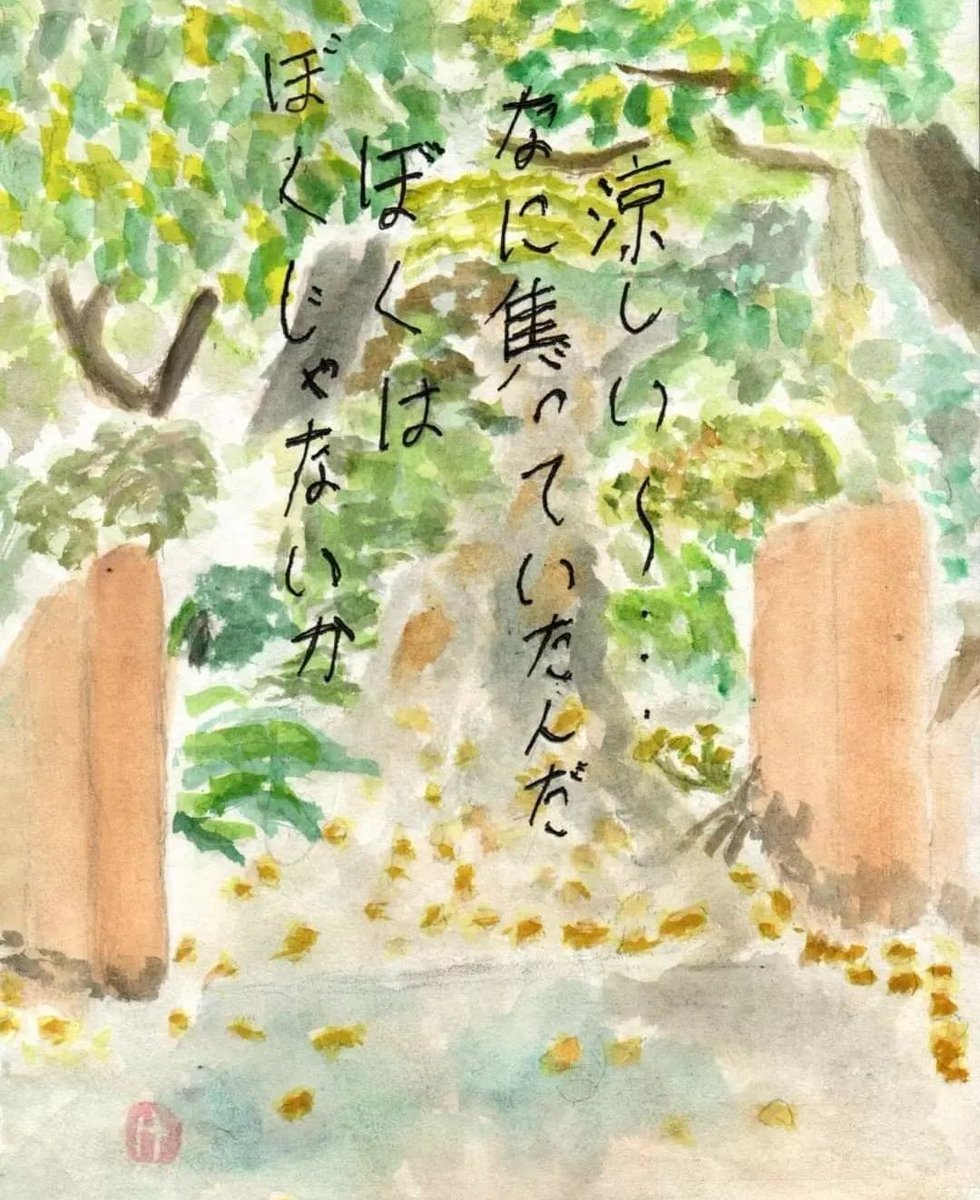 涼しい〜・・・
なに焦っていたんだ
ぼくは
ぼくじゃないか